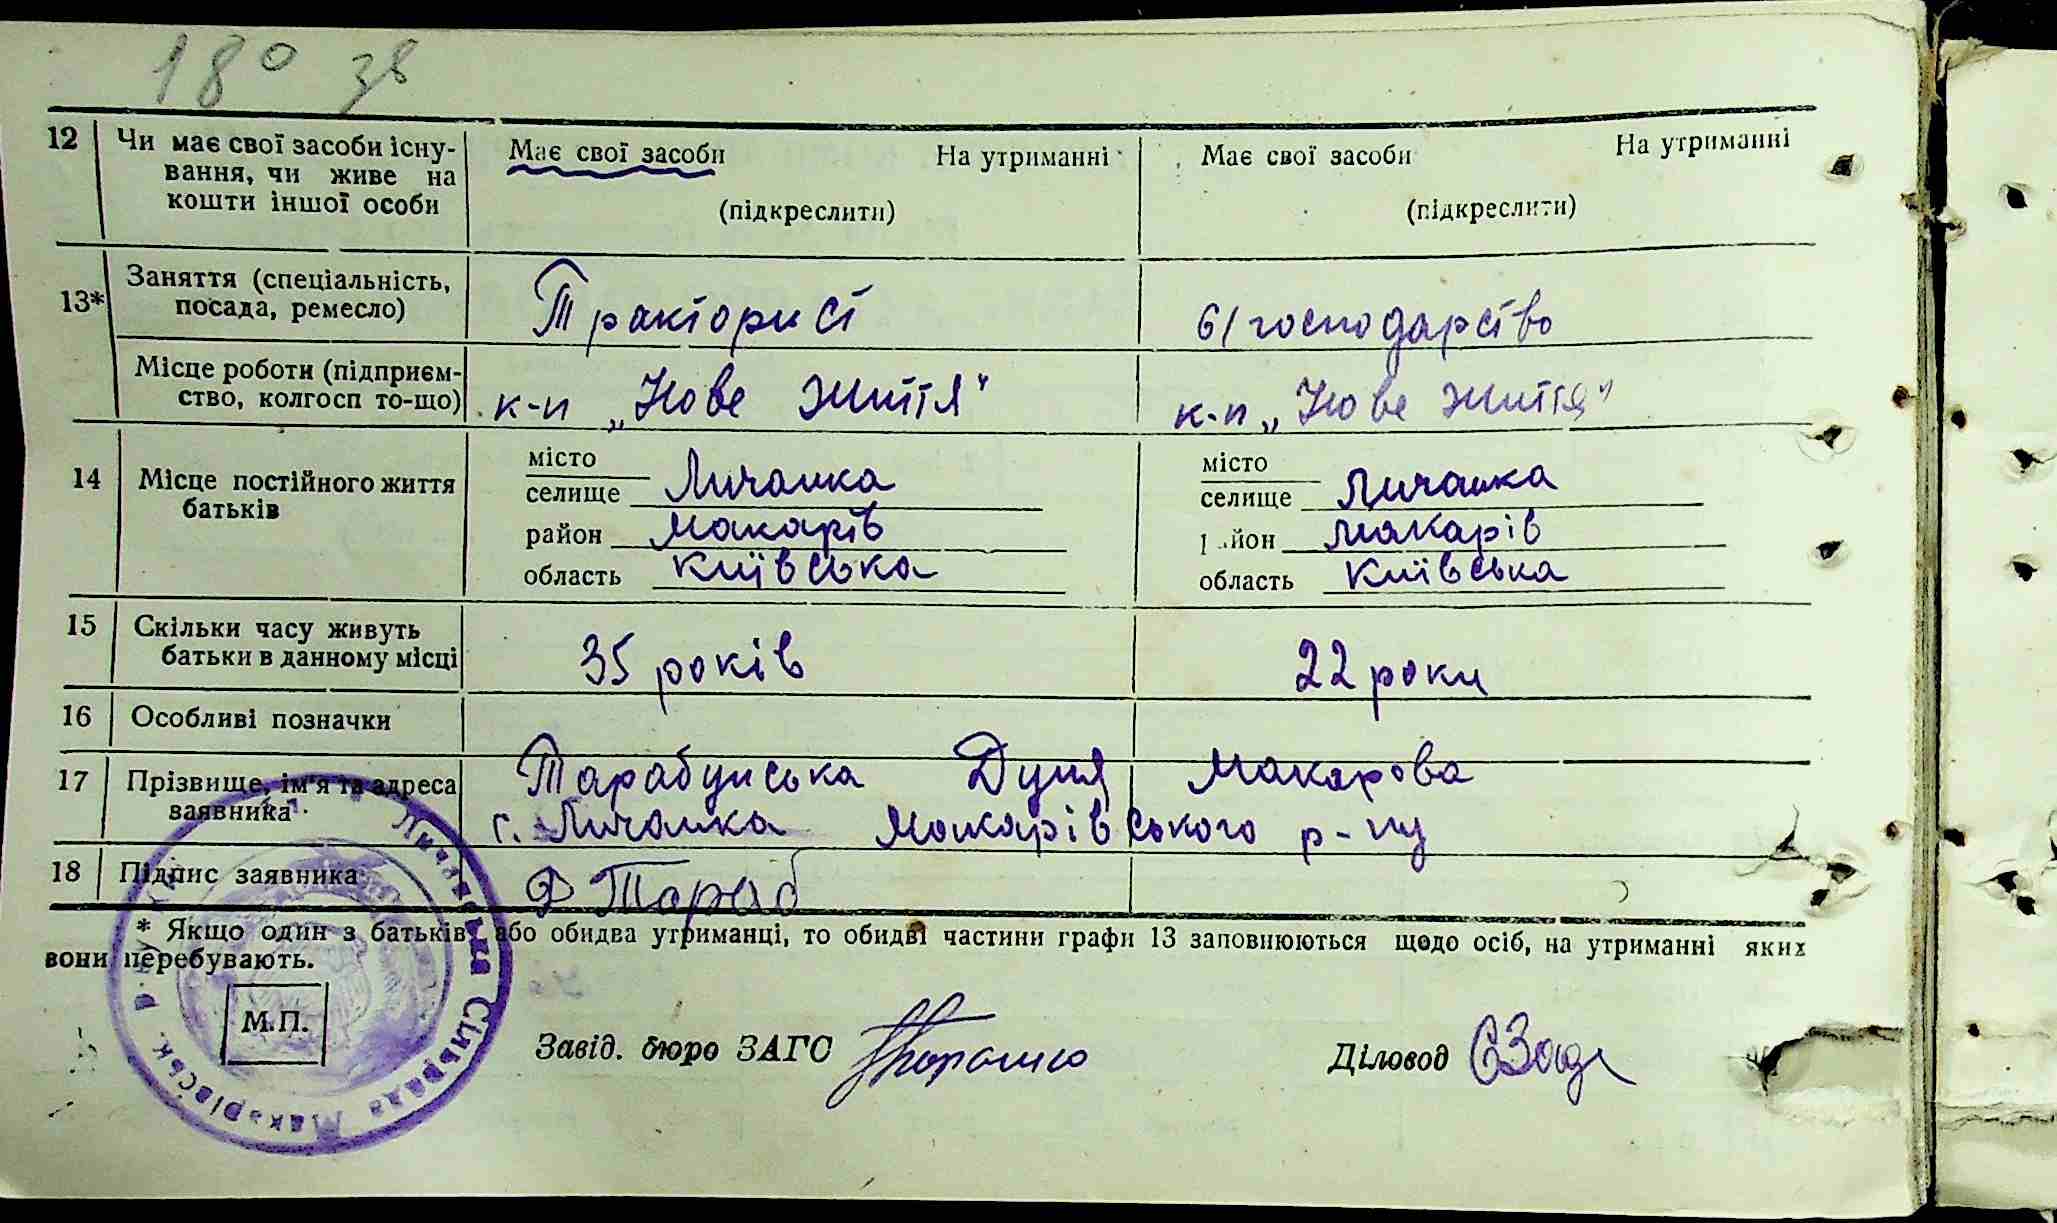 180 зв
12 Чи має свої засоби існу-
вання, чи живе на
кошти іншої особи
Має свої засоби На утриманні
(підкреслити)
Має свої засоби На утриманні
(підкреслити)
13* Заняття (спеціальність,
посада, ремесло)
Тракторист
б/господарство
Місце роботи (підприєм-
ство, колгосп то-що)
к-п „Нове життя"
к-п „Нове життя"
14 Місце постійного життя
батьків
місто
селище Личанка
район Макарів
область Київська
місто
селище Личанка
район Макарів
область Київська
15 Скільки часу живуть
батьки в данному місці
35 років
22 роки
16 Особливі позначки
17 Прізвище, ім'я та адреса
заявника
Тарабунська Дуня Макарова
с. Личанка Макарівського р-ну
18 Підпис заявника
Тараб
* Якщо один з батьків, або обидва утриманці, то обидві частини графи 13 заповнюються щодо осіб, на утриманні яких
вони перебувають.
М.П.
Личанська Сільрада Макарівськ. р-ну
Завід. бюро ЗАГС
Діловод